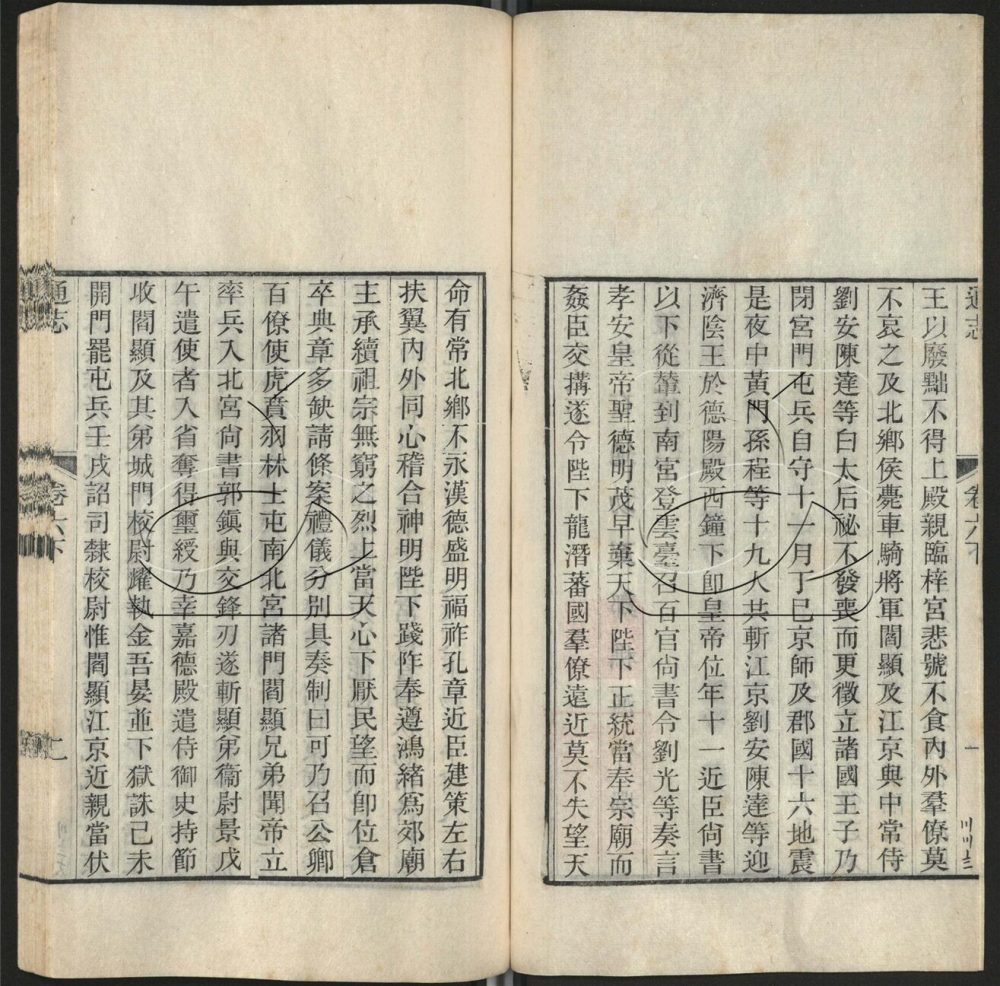 王以廢黜不得上殿親臨梓宮悲號不食內外羣僚莫
不哀之及北鄉侯薨車騎將軍閻顯及江京與中常侍
劉安陳達等白太后祕不發喪而更徵立諸國王子乃
閉宮門屯兵自守十一月丁巳京師及郡國十六地震
是夜中黃門孫程等十九人共斬江京劉安陳達等迎
濟陰王於德陽殿西鐘下卽皇帝位年十一近臣尙書
以下從輦到南宮登雲臺召百官尙書令劉光等奏言
孝安皇帝聖德明茂早棄天下陛下正統當奉宗廟而
姦臣交搆遂令陛下龍潛蕃國羣僚遠近莫不失望天
命有常北鄉不永漢德盛明福祚孔章近臣建策左右
扶翼內外同心稽合神明陛下踐阼奉遵鴻緒爲郊廟
主承續祖宗無窮之烈上當天心下厭民望而卽位倉
卒典章多缺請條案禮儀分別具奏制曰可乃召公卿
百僚使虎賁羽林士屯南北宮諸門閻顯兄弟聞帝立
率兵入北宮尙書郭鎭與交鋒刃遂斬顯弟衞尉景戊
午遣使者入省奪得璽綬乃幸嘉德殿遣侍御史持節
收閻顯及其弟城門校尉耀執金吾晏並下獄誅己未
開門罷屯兵壬戌詔司隸校尉惟閻顯江京近親當伏
通志
卷六下
七